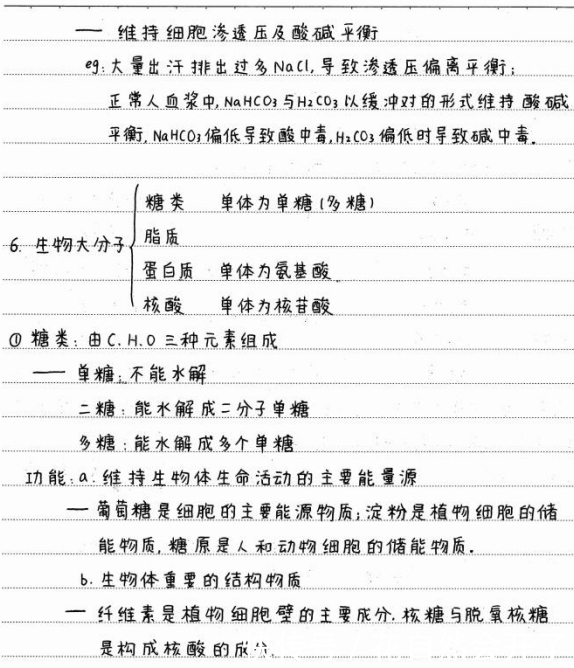 — 维持细胞渗透压及酸碱平衡
eg:大量出汗排出过多NaCl,导致渗透压偏离平衡;
正常人血浆中,NaHCO3与H2CO3以缓冲对的形式维持酸碱
平衡,NaHCO3偏低导致酸中毒,H2CO3偏低时导致碱中毒.
6.生物大分子
糖类 单体为单糖(多糖)
脂质
蛋白质 单体为氨基酸
核酸 单体为核苷酸
① 糖类:由C.H.O三种元素组成
— 单糖:不能水解
二糖:能水解成二分子单糖
多糖:能水解成多个单糖
功能:a.维持生物体生命活动的主要能量源
— 葡萄糖是细胞的主要能源物质;淀粉是植物细胞的储
能物质,糖原是人和动物细胞的储能物质.
b.生物体重要的结构物质
— 纤维素是植物细胞壁的主要成分.核糖与脱氧核糖
是构成核酸的成分.